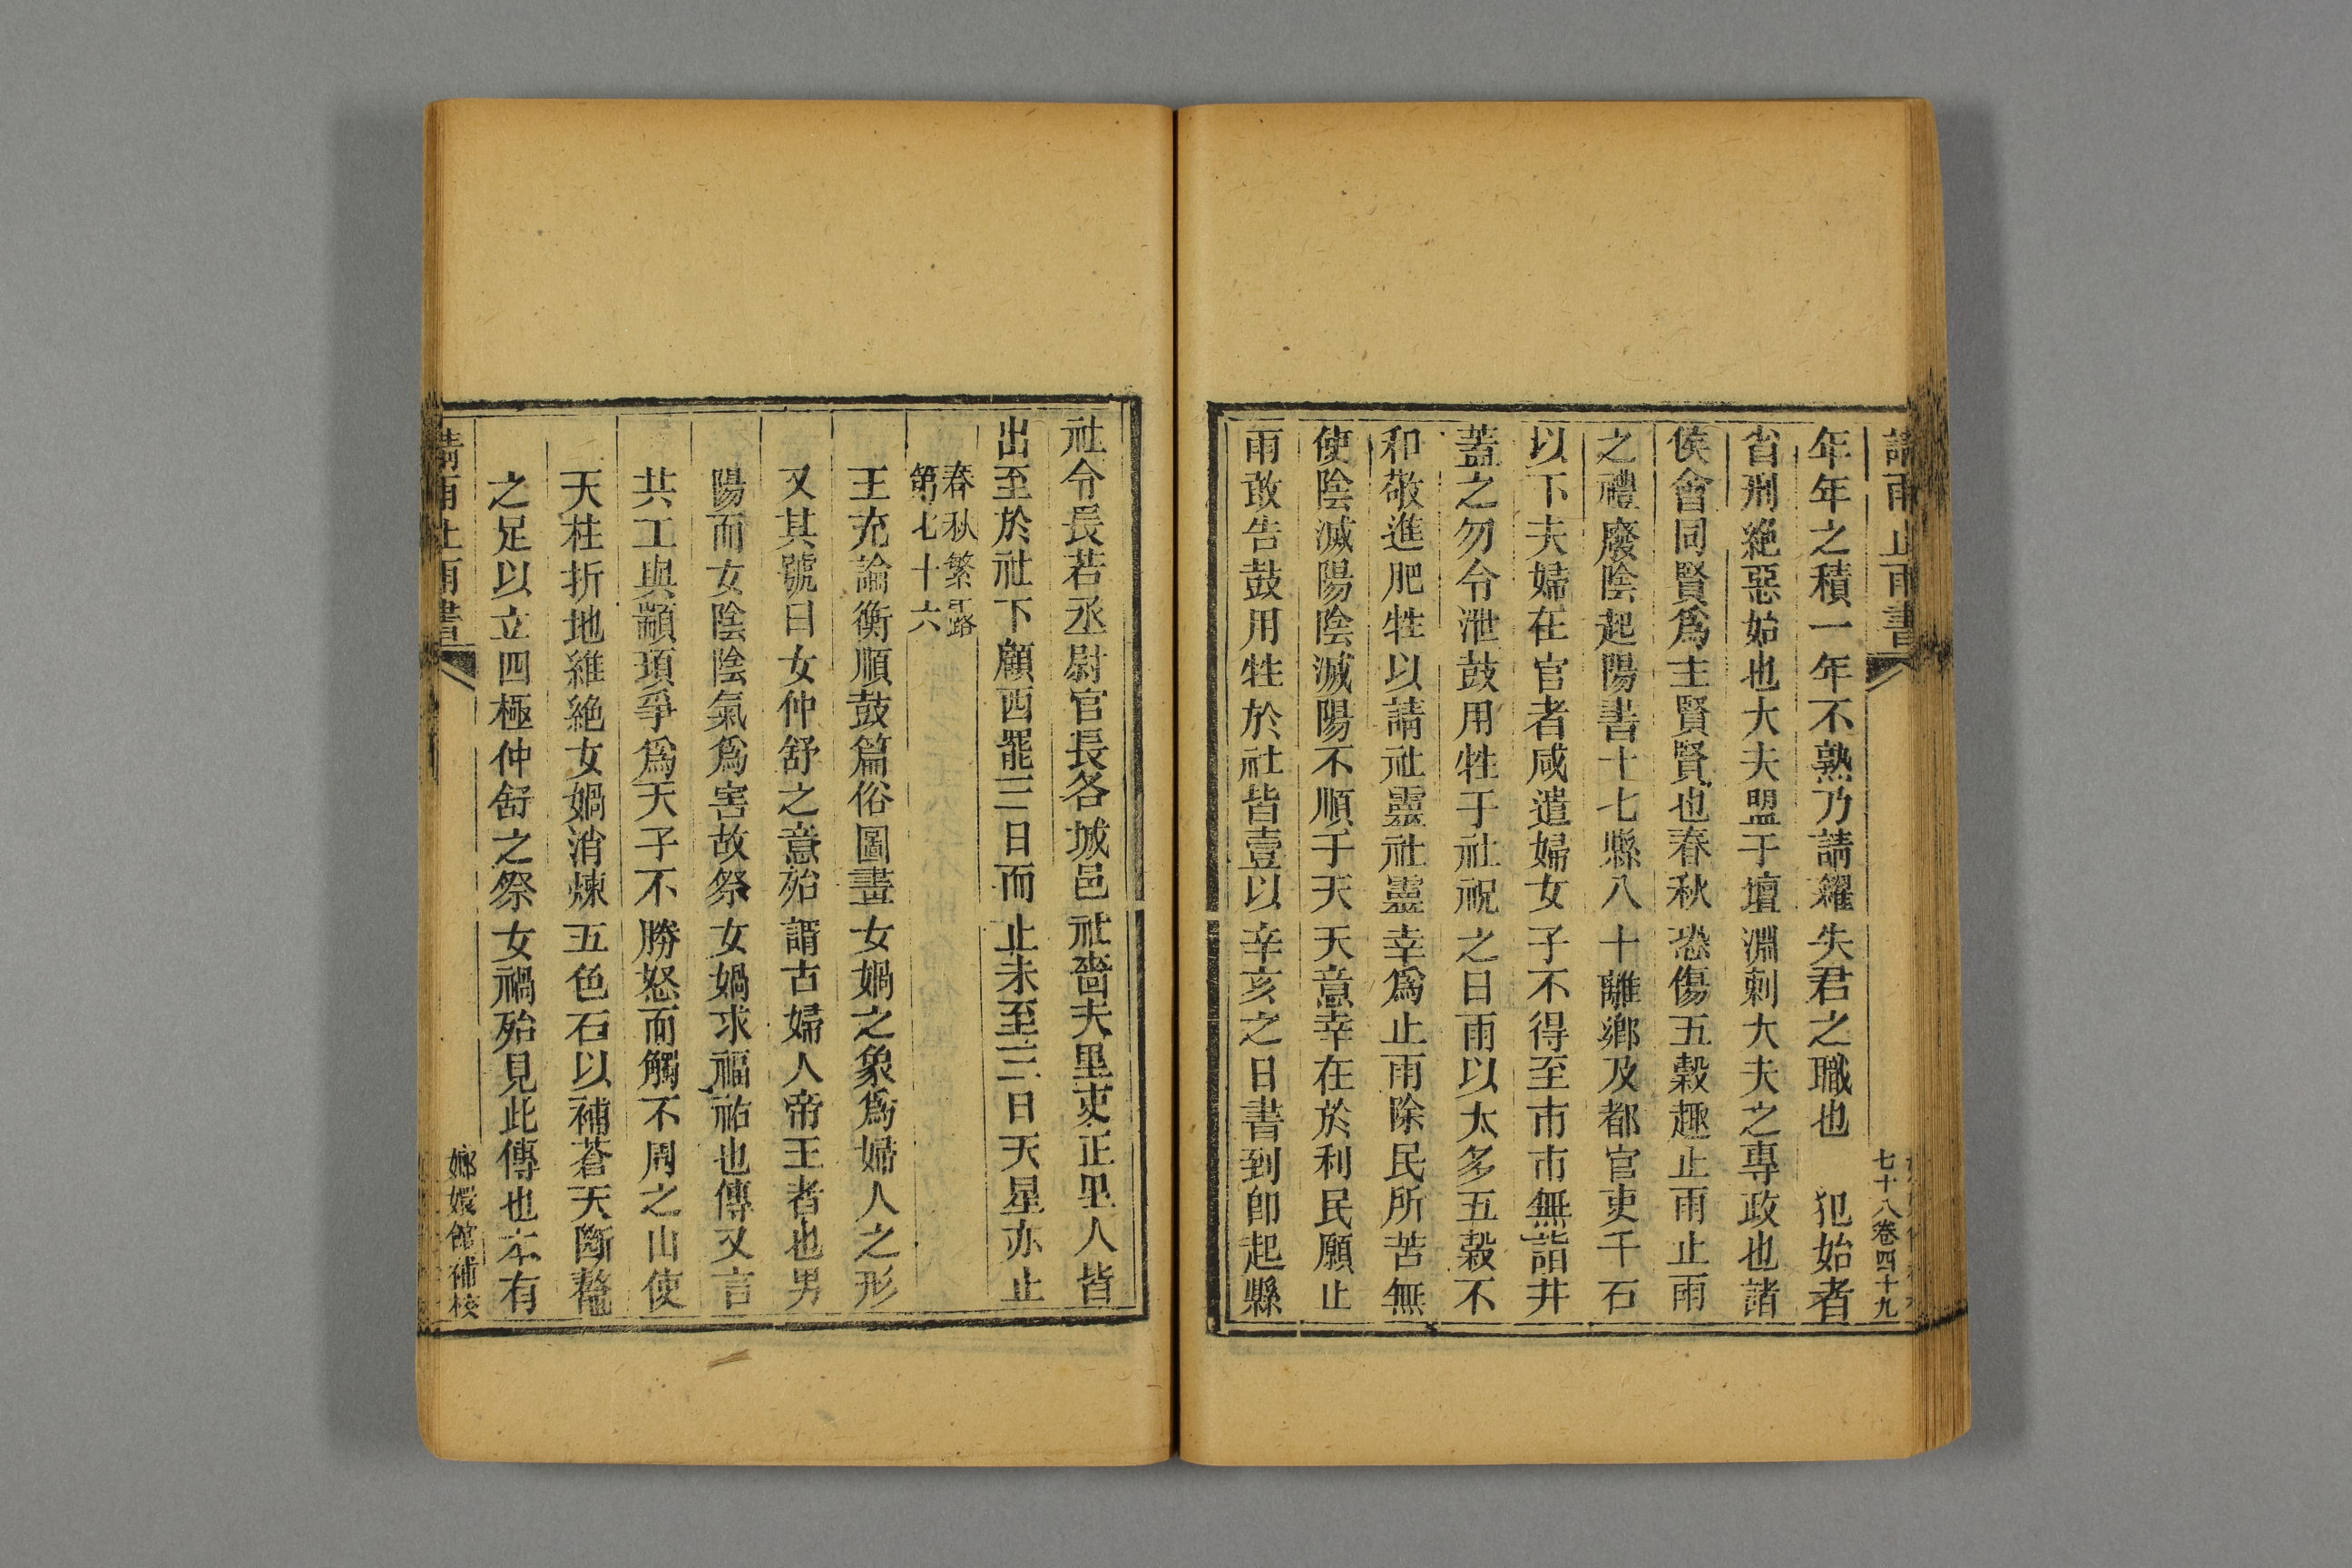 請雨止雨書
七十八卷四十九
年年之積一年不熟乃請糴失君之職也　犯始者
省刑絕惡始也大夫盟于壇淵刺大夫之專政也諸
侯會同賢爲主賢賢也春秋恐傷五穀趣止雨止雨
之禮廢陰起陽書十七縣八十離鄉及都官吏千石
以下夫婦在官者咸遣婦女子不得至市市無詣井
蓋之勿令泄鼓用牲于社祝之日雨以太多五穀不
和敬進肥牲以請社靈社靈幸爲止雨除民所苦無
使陰滅陽陰滅陽不順于天天意幸在於利民願止
雨敢告鼓用牲於社皆壹以辛亥之日書到卽起縣
社令長若丞尉官長各城邑社嗇夫里吏正里人皆
出至於社下顧西罷三日而止未至三日天星亦止
春秋繁露
第七十六
王充論衡順鼓篇俗圖畫女媧之象爲婦人之形
又其號曰女仲舒之意殆謂古婦人帝王者也男
陽而女陰陰氣爲害故祭女媧求福祐也傳又言
共工與顓頊爭爲天子不勝怒而觸不周之山使
天柱折地維絕女媧消煉五色石以補蒼天斷鼇
之足以立四極仲舒之祭女禍殆見此傳也本有
請雨止雨書
嫏嬛館補校